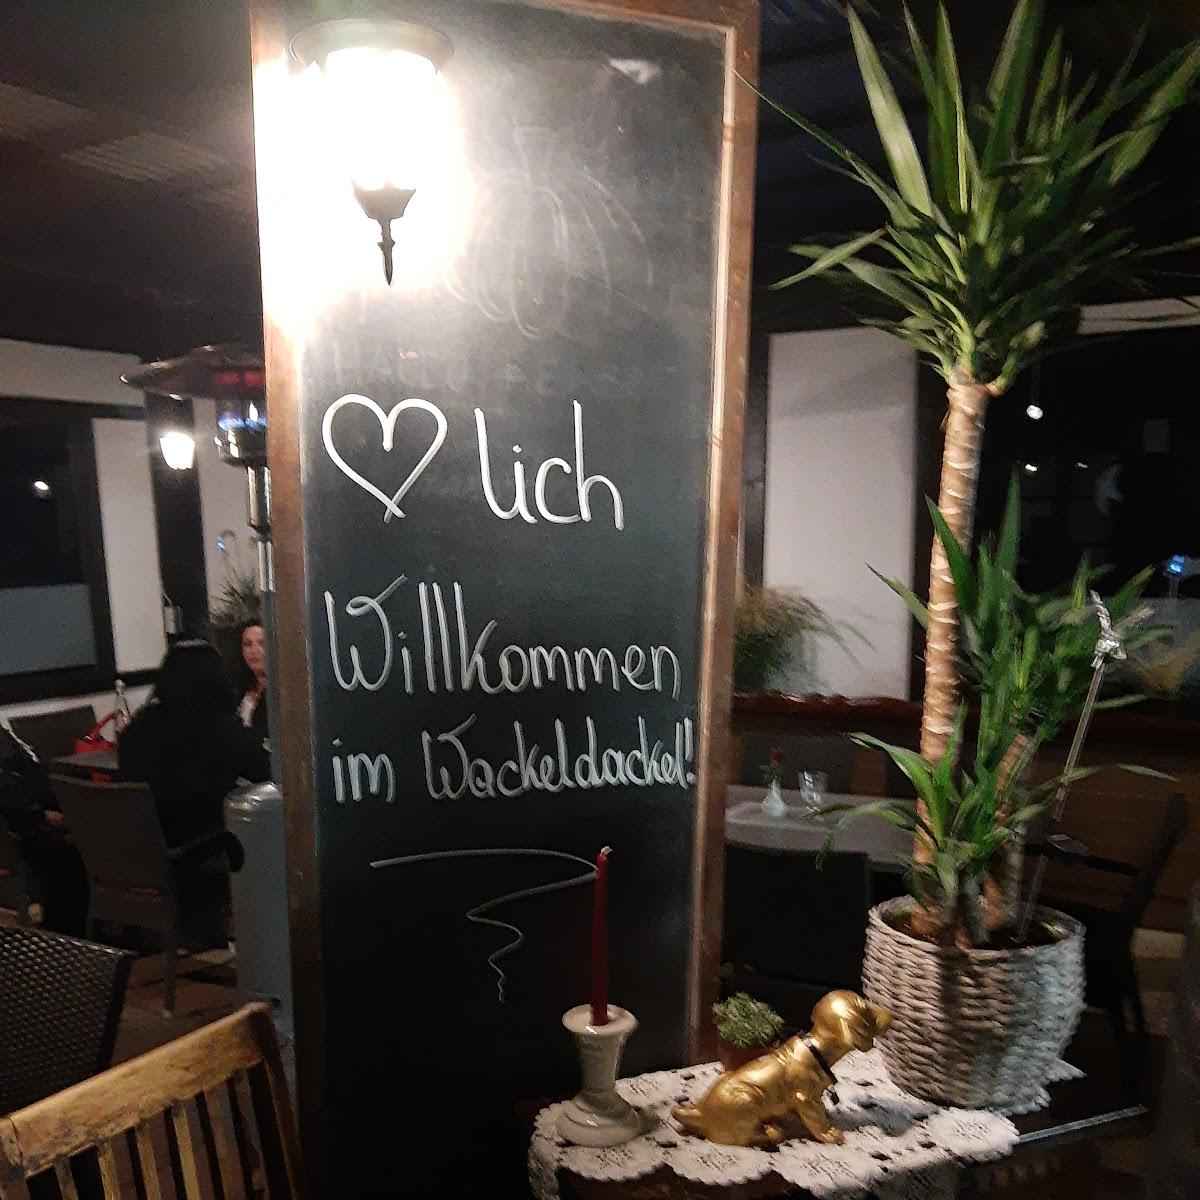 ♡lich
Willkommen
im Wackeldackel!